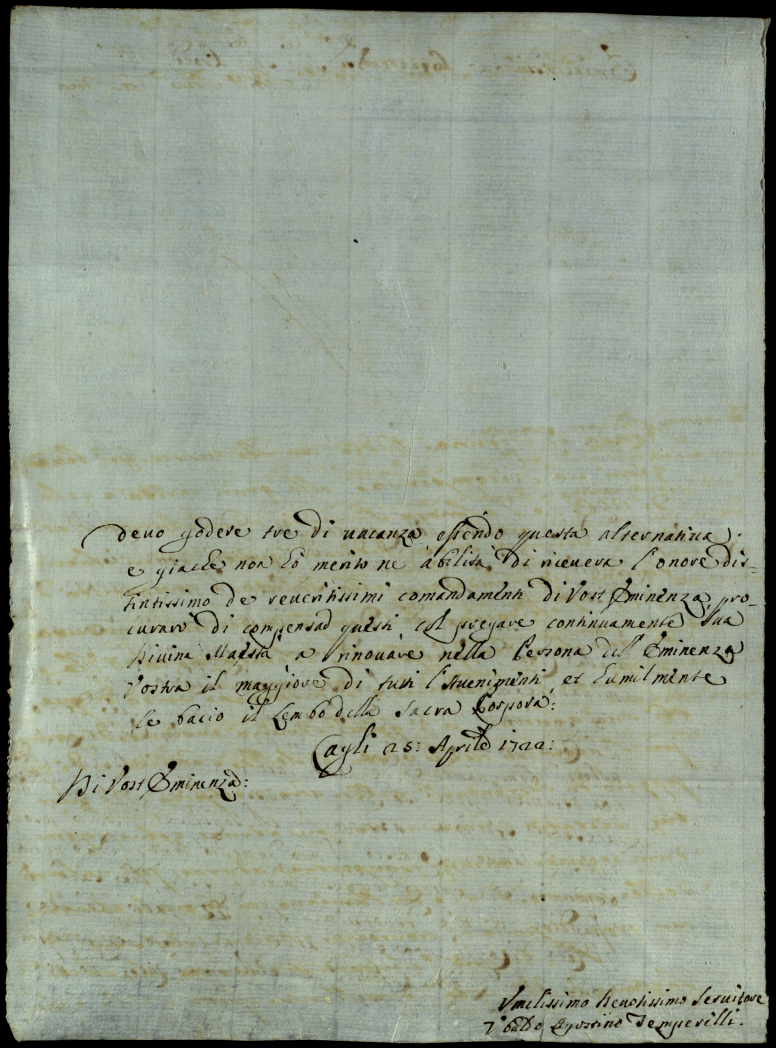 devo godere tre di vacanza, essendo questa alternativa.
e giache non hò merito ne abilità di ricever l'onore dis-
tintissimo de reveritissimi comandamenti di Vostr Eminenza, pro-
curarò di compensar questi col pregare continuamente Sua
Divina Maestà a rinovare nella Persona dell Eminenza
Vostra il maggiore di tutti et humilmente
le bacio il Lembo della Sacra Porpora:
Cagli 25: Aprile 1722:
Di Vostr Eminenza:
Umilissimo Devotissimo Servitore
Agostino